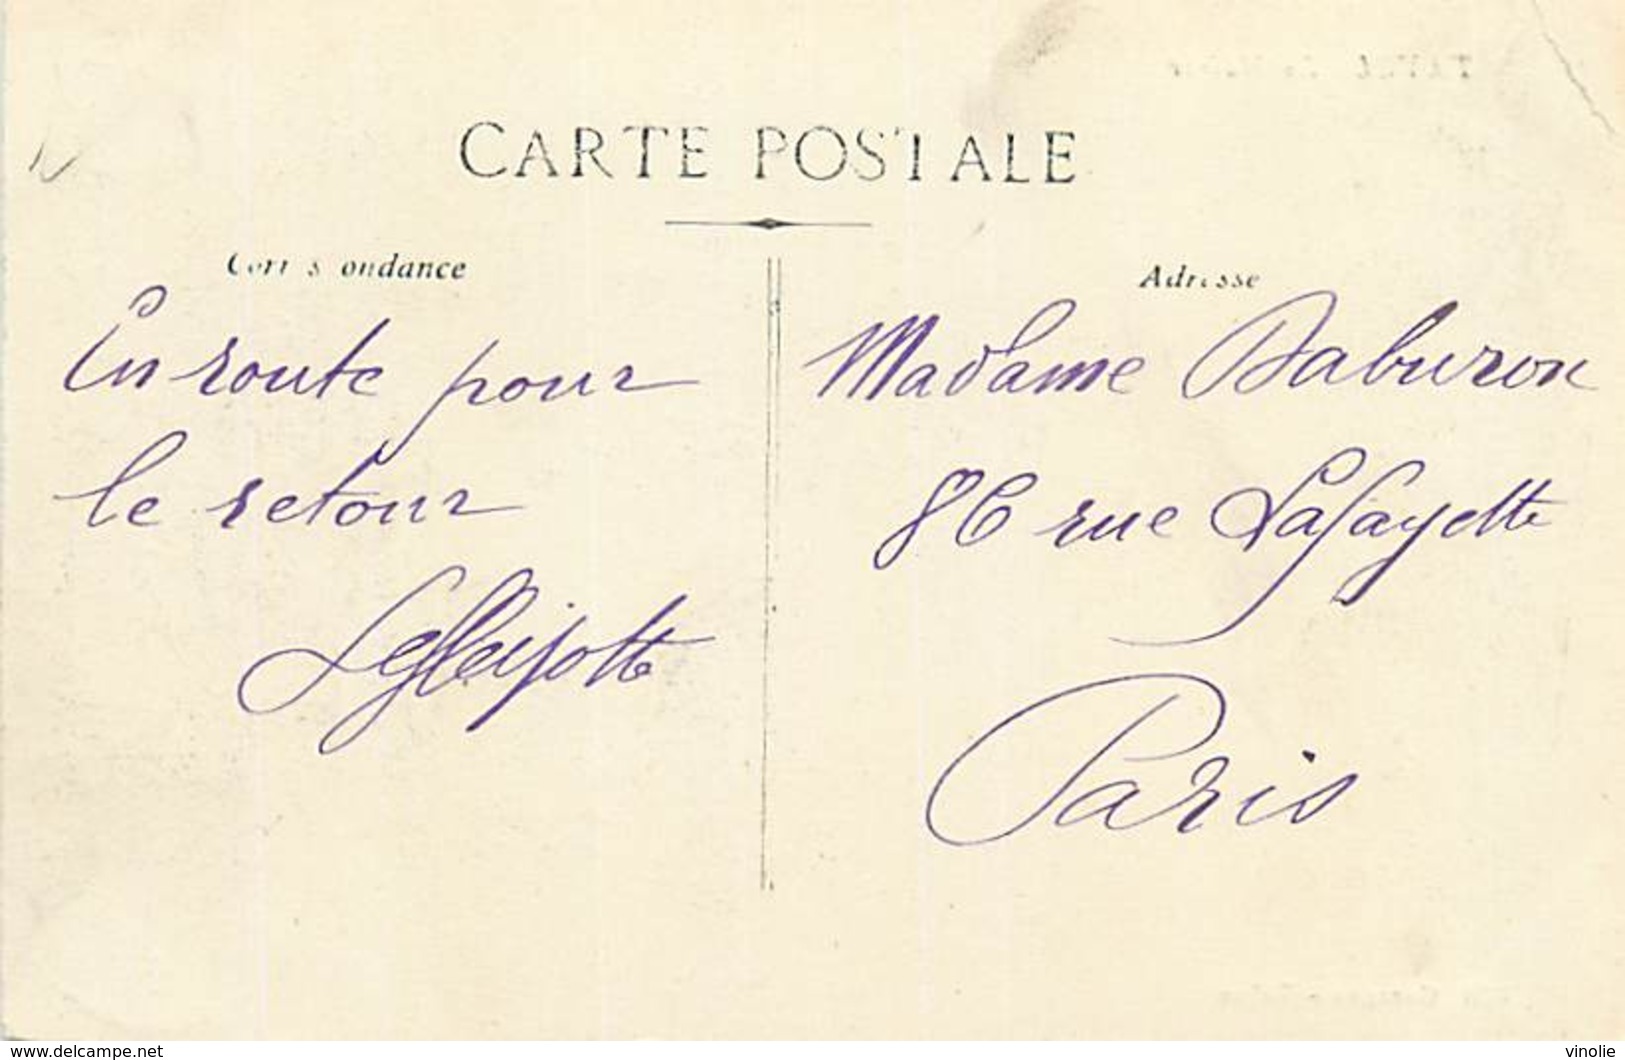 CARTE POSTALE
Correspondance
En route pour
le retour
Adresse
Madame Daburon
86 rue Lafayette
Paris
www.delcampe.net
vinolie